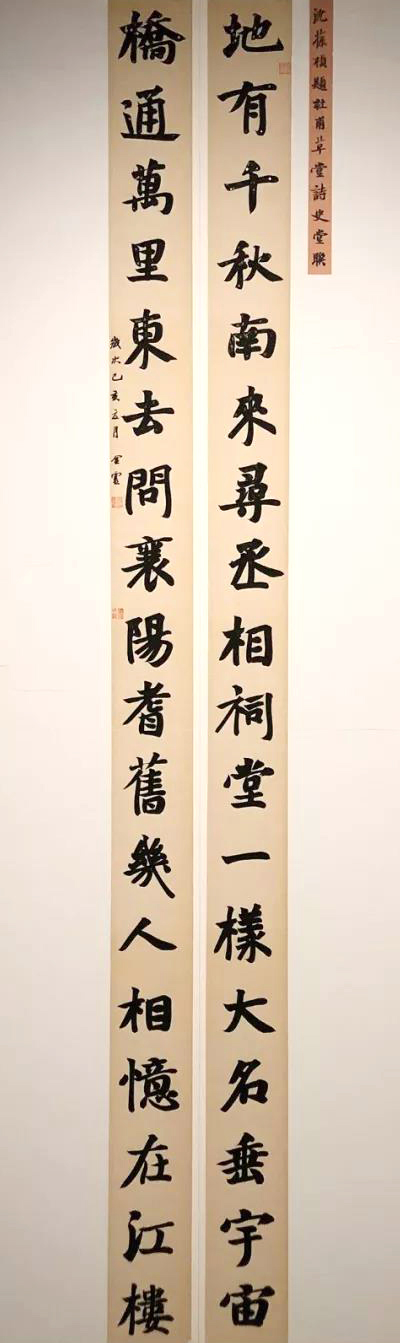 沈葆楨題杜甫草堂詩史堂聯
地有千秋南來尋丞相祠堂一樣大名垂宇宙
橋通萬里東去問襄陽耆舊幾人相憶在江樓
歲次己亥